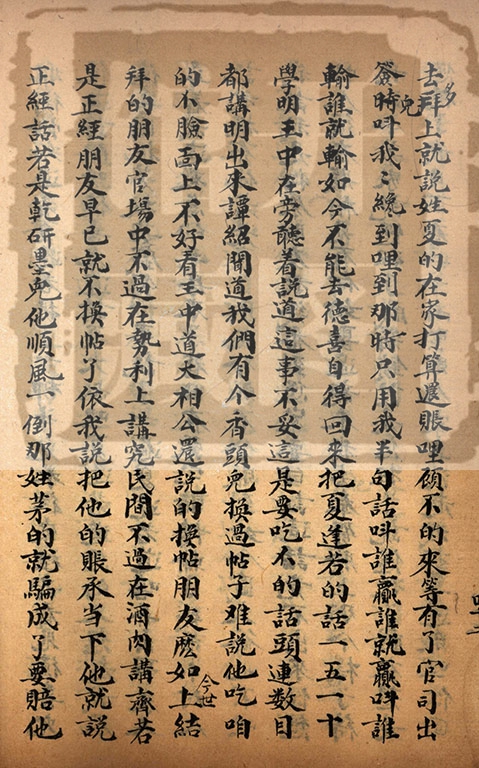 去拜上就說姓夏的在家打算還賬哩顧不的來等有了官司出
多
簽時叫我〻纔到哩到那時只用我半句話叫誰贏誰就贏叫誰
免
輸誰就輸如今不能去德喜自得回來把夏逢若的話一五一十
學明王中在旁聽着說道這事不妥這是要吃不的話頭連數目
都講明出來譚紹聞道我們有个香頭免換過帖子难說他吃咱
的不臉面上不好看王中道大相公還說的換帖朋友麽如上結
今世
拜的朋友官場中不過在勢利上講究民間不過在酒肉講齊若
是正經朋友早已就不換帖了依我說把他的賬承當下他就說
正經話若是乾研墨免他順風一倒那姓茅的就騙成了要賠他